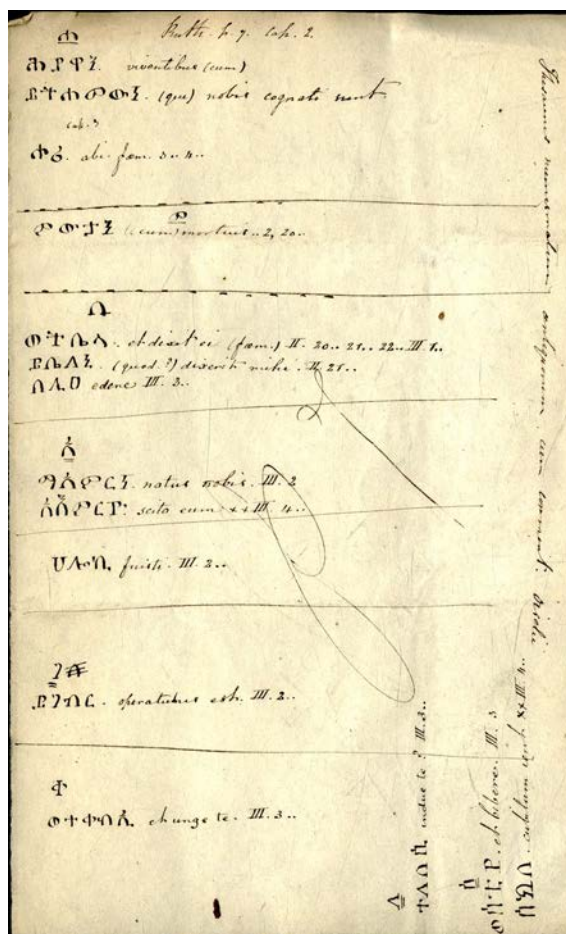 ሐ Ruth. p. 7. cap. 2.
ሕያዋን. viventibus (cum)
ይትሐመወነ. (qui) nobis cognati sunt.
cap. 3
ሖረ. abi. fœm. 3. 4..
መ
ምውታን (cum) mortuis. 2, 20..
በ
ወትቤላ. et dixit ei (fœm.) II. 20.. 21.. 22.. III. 1..
ይቤለኒ. (quod?) dixerit mihi. II. 21..
በሊዐ edens III. 3..
አ
ማእምርነ. natus nobis. III. 2
አእምርዮ scito eum ++ III. 4..
ሀሎኪ fuisti. III. 2..
ገ
ይገብር. operaturus est. III. 2..
ቀ
ወተቀብኢ et unge te. III. 3..
ለ
ተለበሲ indue te? III. 3..
ሰ
ወሰትየ. et bibere. III. 3
ሰከበ. cubitum ierit ++ III. 4..
Thesaurus numismatum antiquorum cum comment.